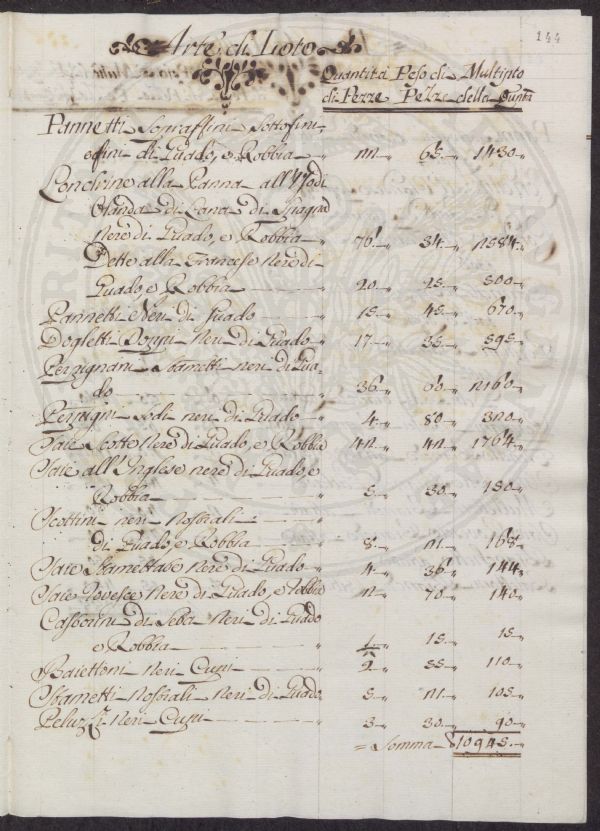 244
Arte di Lioto
Quantità Peso di Multipto
di Pezze Pezze della Qunta
Pannetti Sopraffini Sottofini,
e fini di Guado, e Robbia 22 65 1430
Londrine alla Panna all'uso di
Olanda di Lana di Spagna
Nere di Guado, e Robbia 76 34 2584
Dette alla Francese Nere di
Guado, e Robbia 20 25 500
Pannetti Neri di Guado 15 45 670
Dogletti Neri di Guado 17 35 595
Perpignani Stametti neri di Gua-
do 36 60 2160
Perpigni Sodi neri di Guado 4 80 320
Saie Scotte Nere di Guado, e Robbia 42 42 1764
Saie all'Inglese nere di Guado, e
Robbia 5 30 150
Scottini neri Nostrali
di Guado, e Robbia 8 21 168
Saie Stamettate Nere di Guado 4 36 144
Saie Rovesce Nere di Guado, e Robbia 2 70 140
Castorini di Seta Neri di Guado
e Robbia 1 15 15
Baiettoni Neri Cupi 2 55 110
Stametti Nostrali neri di Guado 5 21 105
Peluzzi Neri Cupi 3 30 90
= Somma 10945